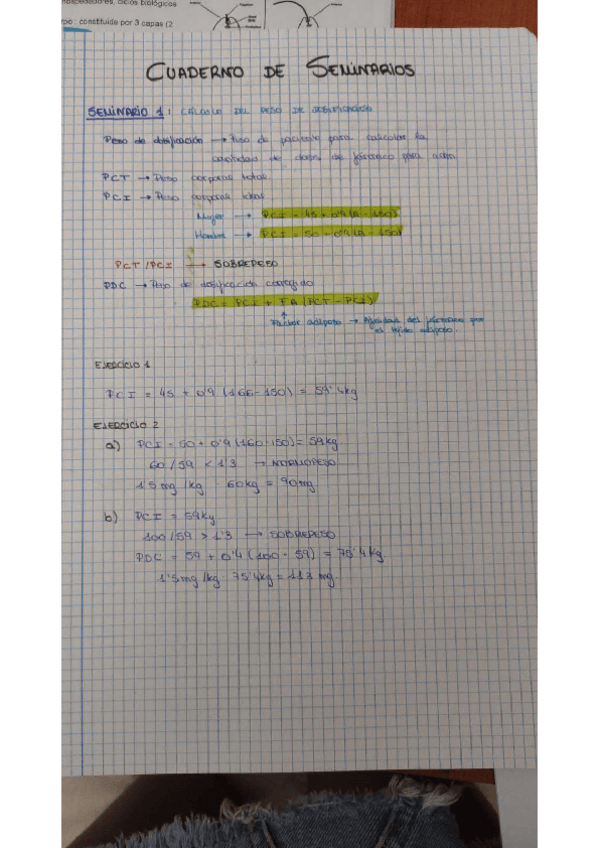 hospedadores, ciclos biológicos
po: constituida por 3 capas (2
CUADERNO DE SEMINARIOS
SEMINARIO 1: CÁLCULO DEL PESO DE DOSIFICACIÓN
Peso de dosificación → Peso de paciente para calcular la
cantidad de dosis de fármaco para
PCT → Peso corporal total.
PCI → Peso corporal ideal
Mujer → PCI = 45 + 0'9 (A - 150)
Hombre → PCI = 50 + 0'9 (A - 150)
PCT/PCI → SOBREPESO
PDC → Peso de dosificación corregido
PDC = PCI + FA (PCT - PCI)
Factor adiposo → del fármaco por
el tejido adiposo.
EJERCICIO 1
PCI = 45 + 0'9 (166-150) = 59'4kg
EJERCICIO 2
a) PCI = 50 + 0'9 (160-150) = 59kg
60/59 < 1'3 → NORMOPESO
1'5 mg/kg · 60kg = 90mg.
b) PCI = 59kg
100/59 > 1'3 → SOBREPESO
PDC = 59 + 0'4 (100 - 59) = 75'4kg
1'5mg/kg · 75'4kg = 113 mg.